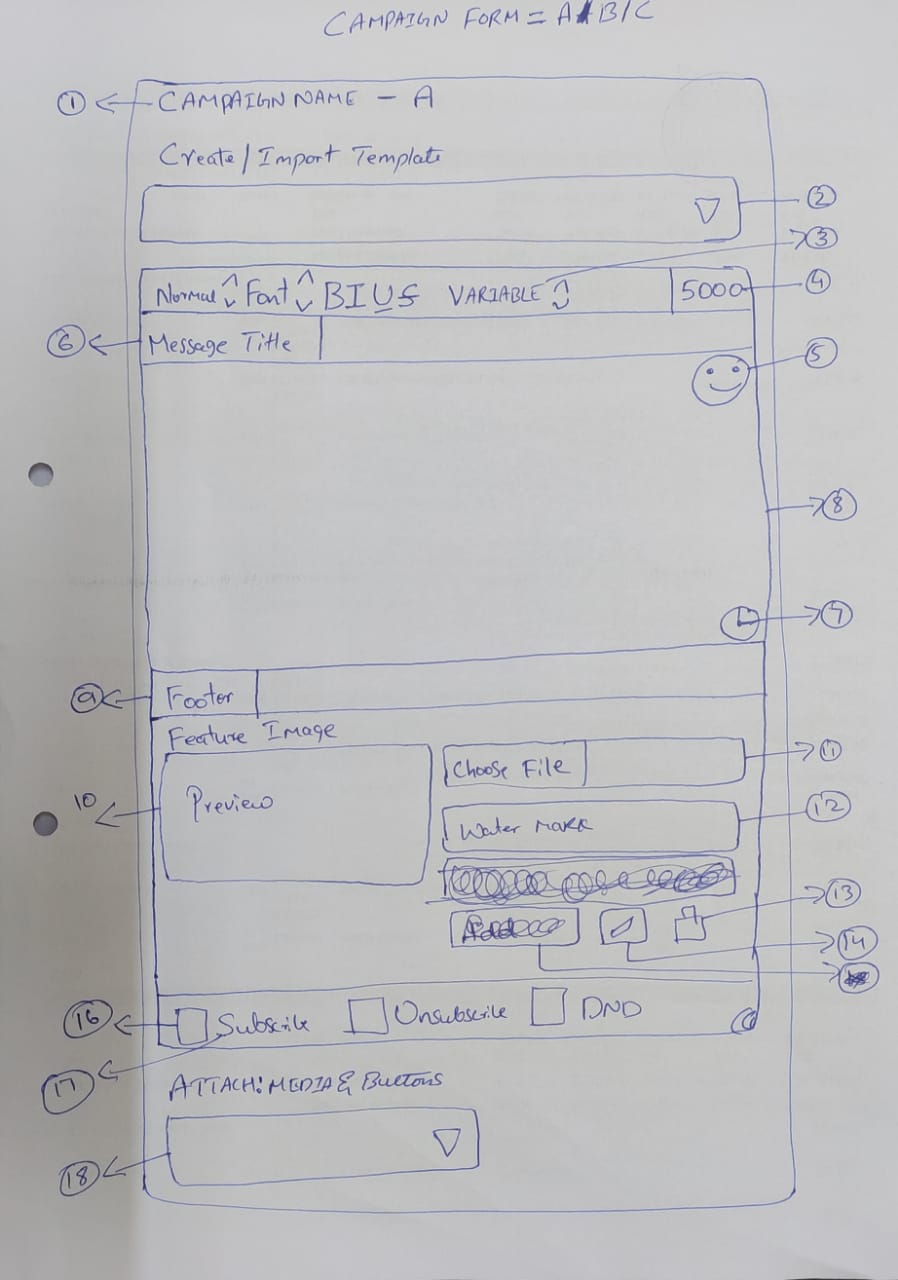 CAMPAIGN FORM = A/B/C
① CAMPAIGN NAME - A
Create/Import Template
②
③
Normal Font BIUS VARIABLE 5000 ④
⑥ Message Title
⑤
⑧
⑦
⑨ Footer
Feature Image
10 Preview
Choose File ⑪
Water MARK ⑫
⑬
⑭
⑯ Subscribe Unsubscribe DND
⑰
ATTACH: MEDIA & Buttons
⑱